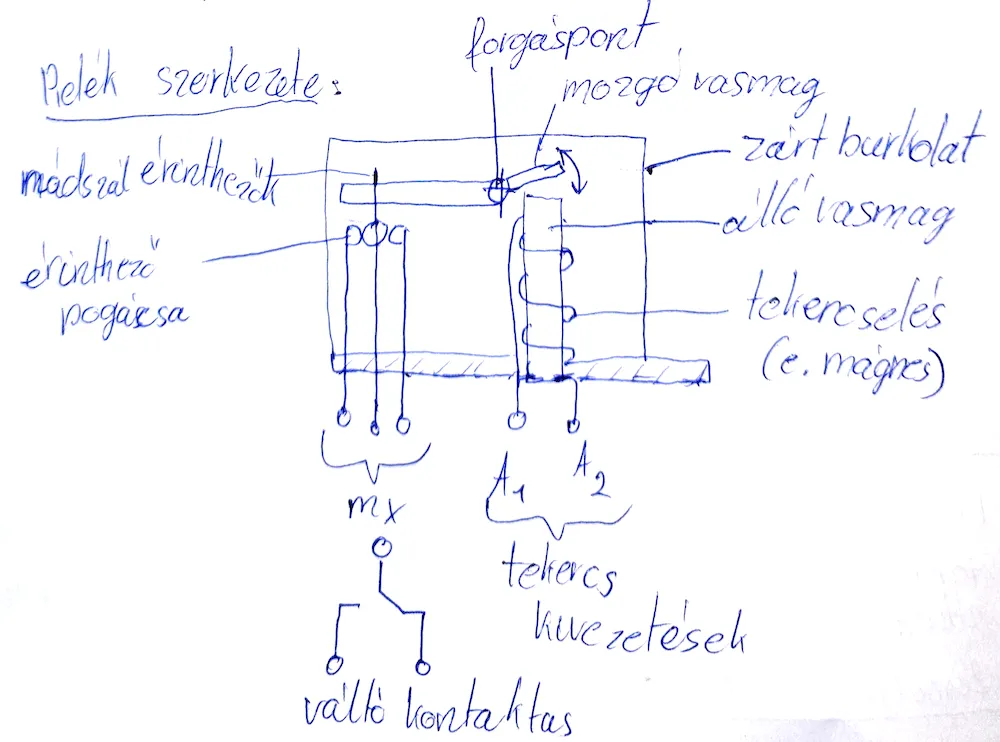 forgáspont
Relék szerkezete:
mozgó vasmag
zárt burkolat
nádszál érinthezők
álló vasmag
érinthező
pogácsa
tekercselés
(e. mágnes)
A1
A2
mx
tekercs
kivezetések
váltó kontaktas